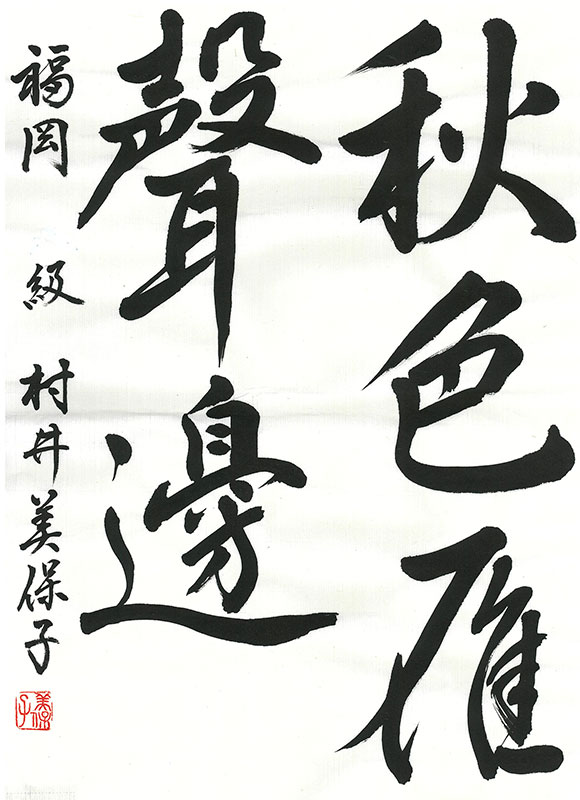 秋色雁
聲邊
福岡 級 村井美保子
美保子